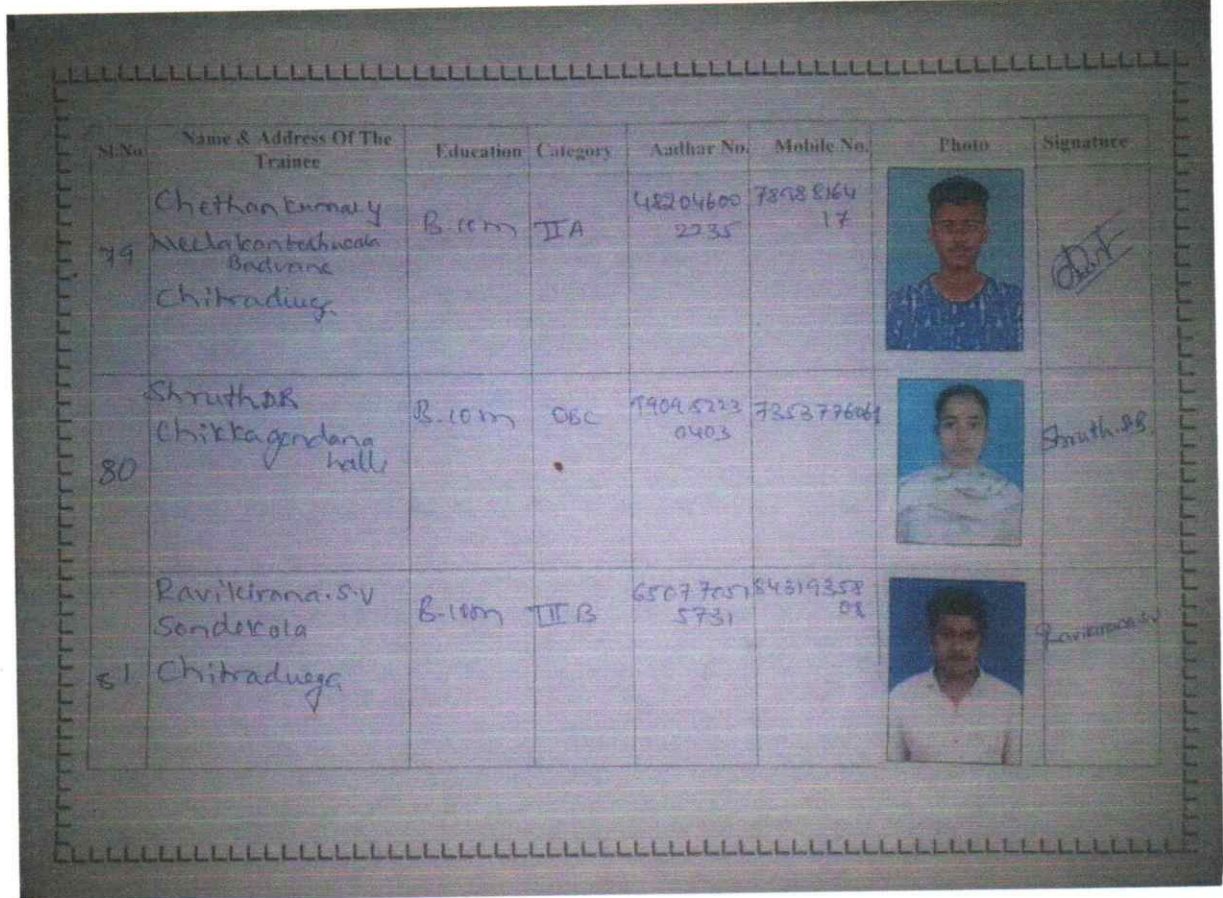 Sl.No Name & Address Of The Trainee Education Category Aadhar No. Mobile No. Photo Signature
79
Chethan Kumar y
Badvane
Chitradurga
B.com
II A
48204600
2235
17
80
Shruth D B
Chikkagondana
halli
B.com
OBC
5223
0403
7353776061
Shruth. D B
81
Ravikirana.S.V
Sondekola
Chitradurga
B-com
III B
5731
84319358
08
Ravikirana.S.V